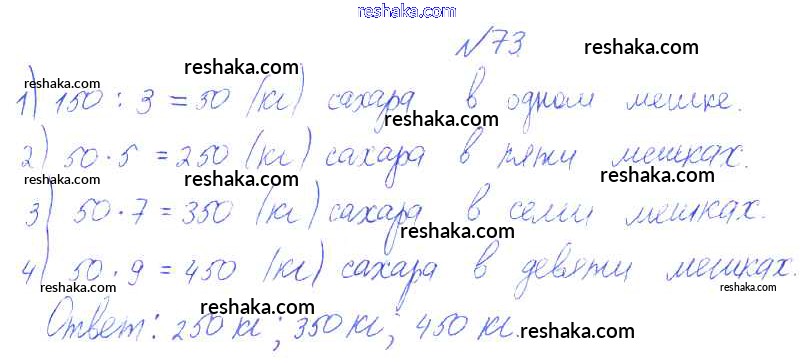 reshaka.com
№73 reshaka.com
reshaka.com reshaka.com
1) 150 : 3 = 50 (кг) сахара в одном мешке.
reshaka.com
2) 50 · 5 = 250 (кг) сахара в пяти мешках.
reshaka.com reshaka.com
3) 50 · 7 = 350 (кг) сахара в семи мешках.
reshaka.com
4) 50 · 9 = 450 (кг) сахара в девяти мешках.
reshaka.com reshaka.com
Ответ: 250 кг; 350 кг; 450 кг.
reshaka.com reshaka.com